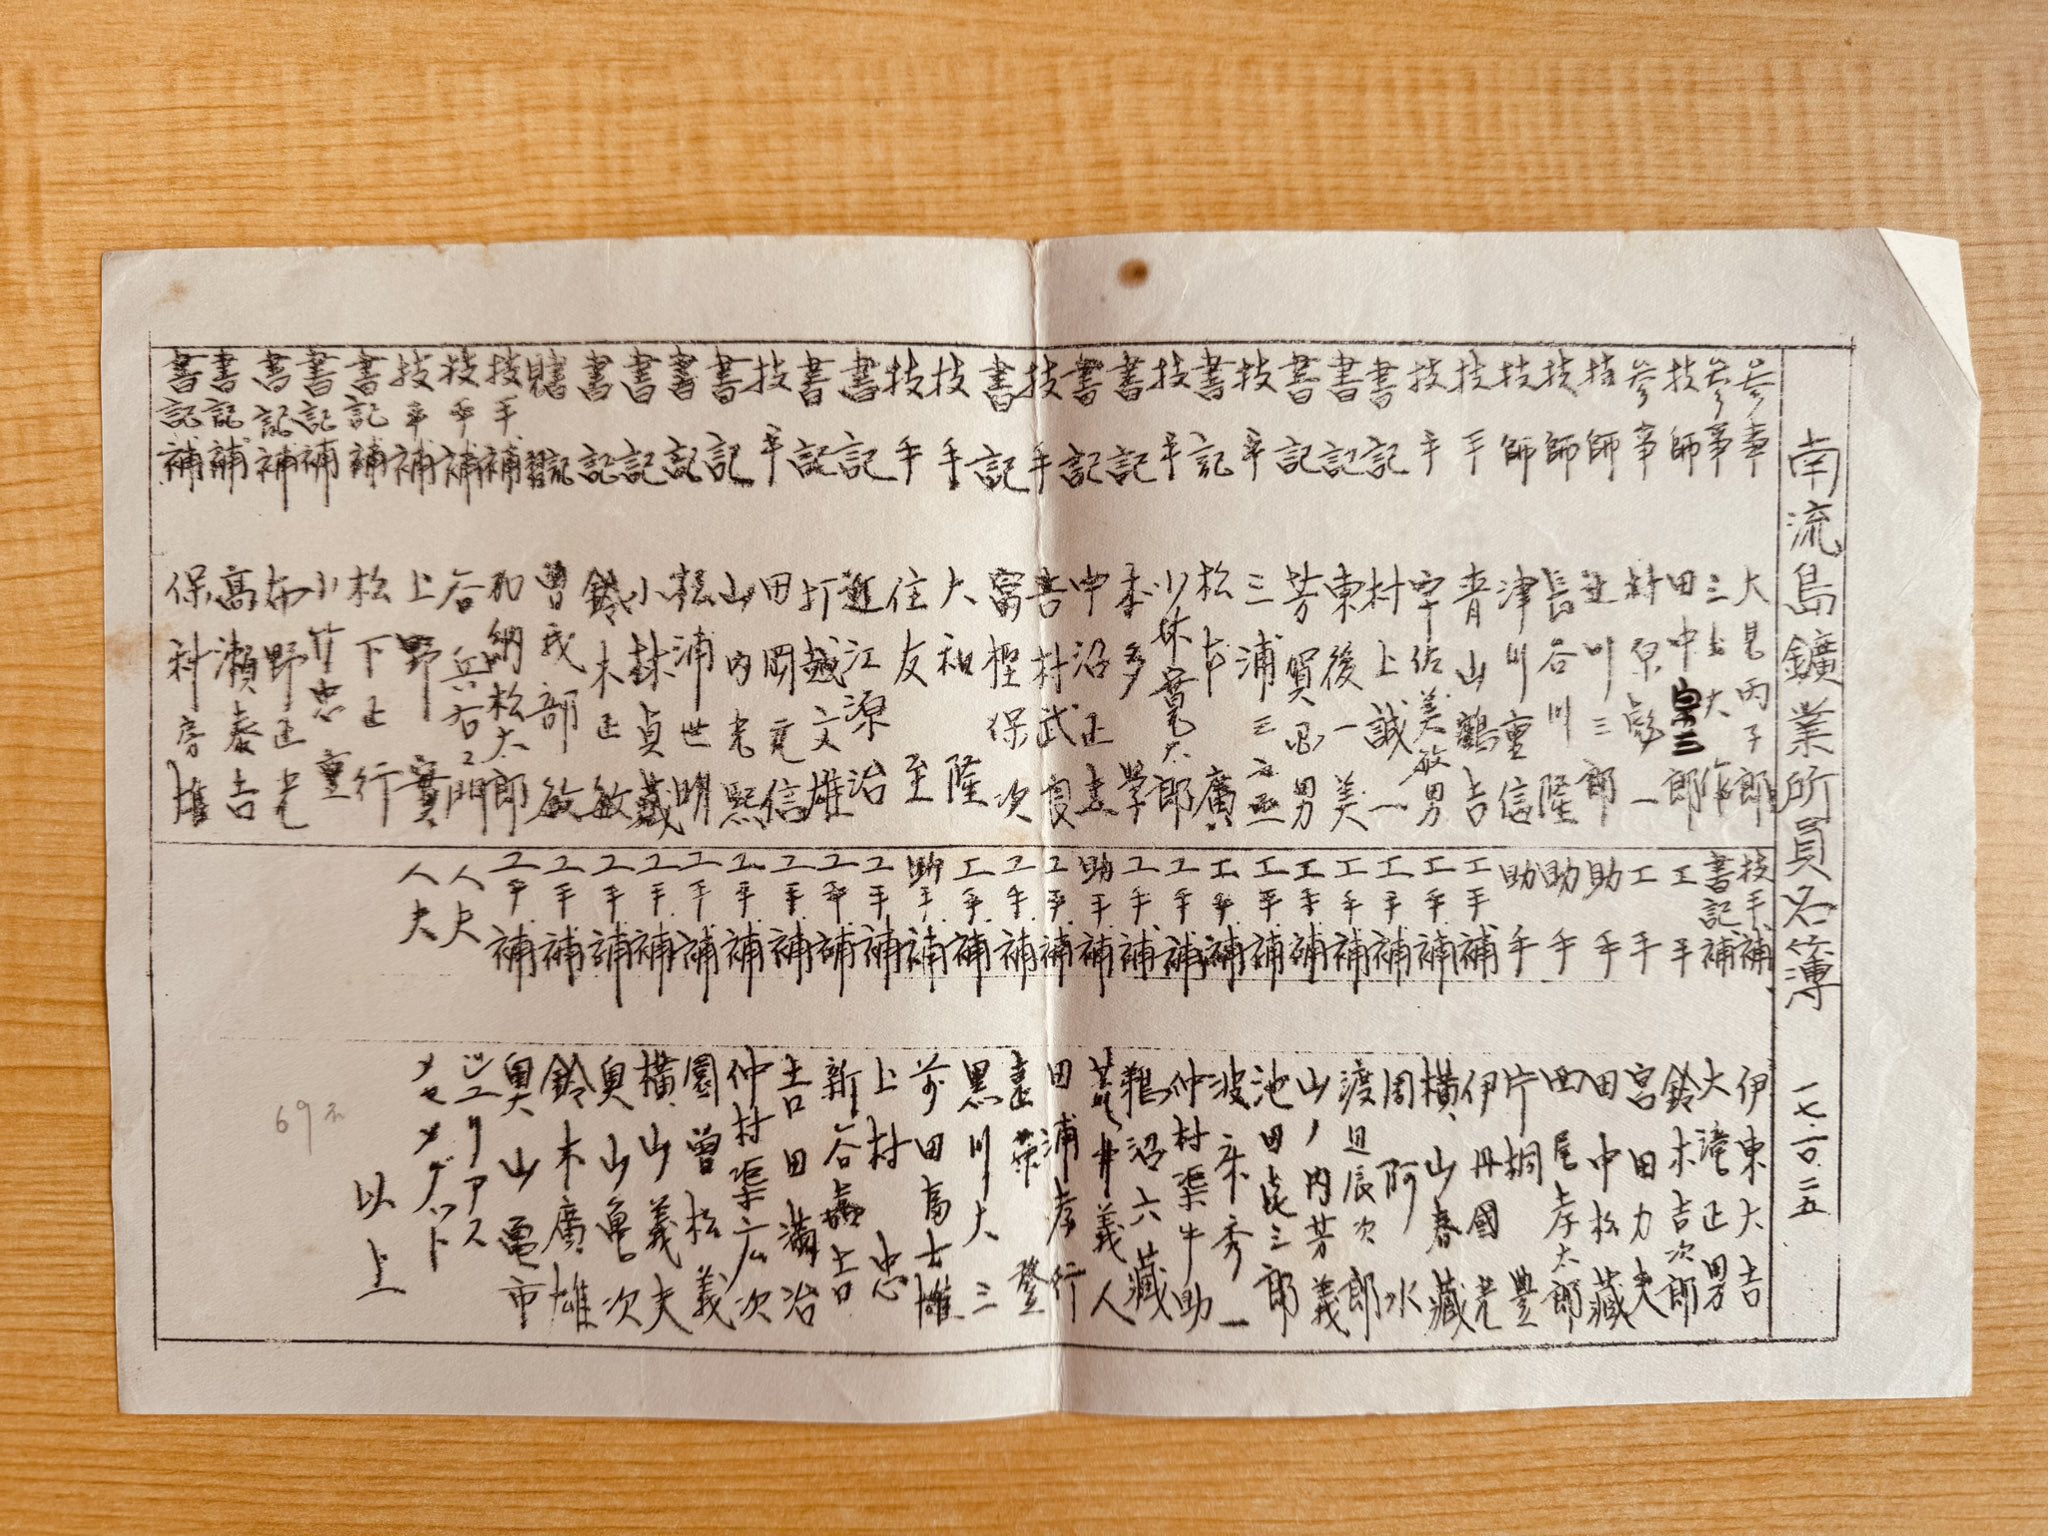 南流島鑛業所員名簿 一七・一〇・二五
参事 大見丙子郎
参事 三 大作
技師 田中 郎
参事 村 一
技師 辻川三郎
技師 長谷川隆
技師 津川重信
技手 青山鶴吉
技手 宇佐美敏男
書記 村上誠一
書記 東後一美
書記 芳賀 男
技手 三浦三 
書記 松本廣
技手 小林 太郎
書記 本多學
書記 中沼正
技手 吉村武
書記 富樫保次
技手 大和隆
技手 住友至
書記 近江源治
書記 打越文雄
技手 田岡 信
書記 山内 熙
書記 松浦世明
書記 小林貞藏
書記 鈴木正敏
書記 曽我部敏
技手補 加納松太郎
技手補 谷兵右エ門
技手補 上野實
書記補 松下正行
書記補 小竹忠重
書記補 野正光
書記補 高瀬春吉
書記補 保科房雄
技手補 伊東大吉
書記補 大滝正男
工手 鈴木吉次郎
工手 宮田力夫
助手 田中松藏
助手 西尾孝太郎
助手 片桐豊
工手補 伊丹國光
工手補 横山春藏
工手補 周阿水
工手補 渡辺辰次郎
工手補 山ノ内芳義
工手補 池田 三郎
工手補 波 秀一
工手補 仲村渠牛助
工手補 鵜沼六藏
助手補 井義人
工手補 田浦孝行
工手補 登
工手補 黒川大三
助手補 前田富士雄
工手補 上村忠
工手補 新谷嘉吉
工手補 吉田満治
工手補 仲村渠広次
工手補 園曽松義
工手補 横山義夫
工手補 奥山亀次
工手補 鈴木廣雄
工手補 奥山亀市
人夫 ビユリアス
人夫 メセメゲット
以上
69